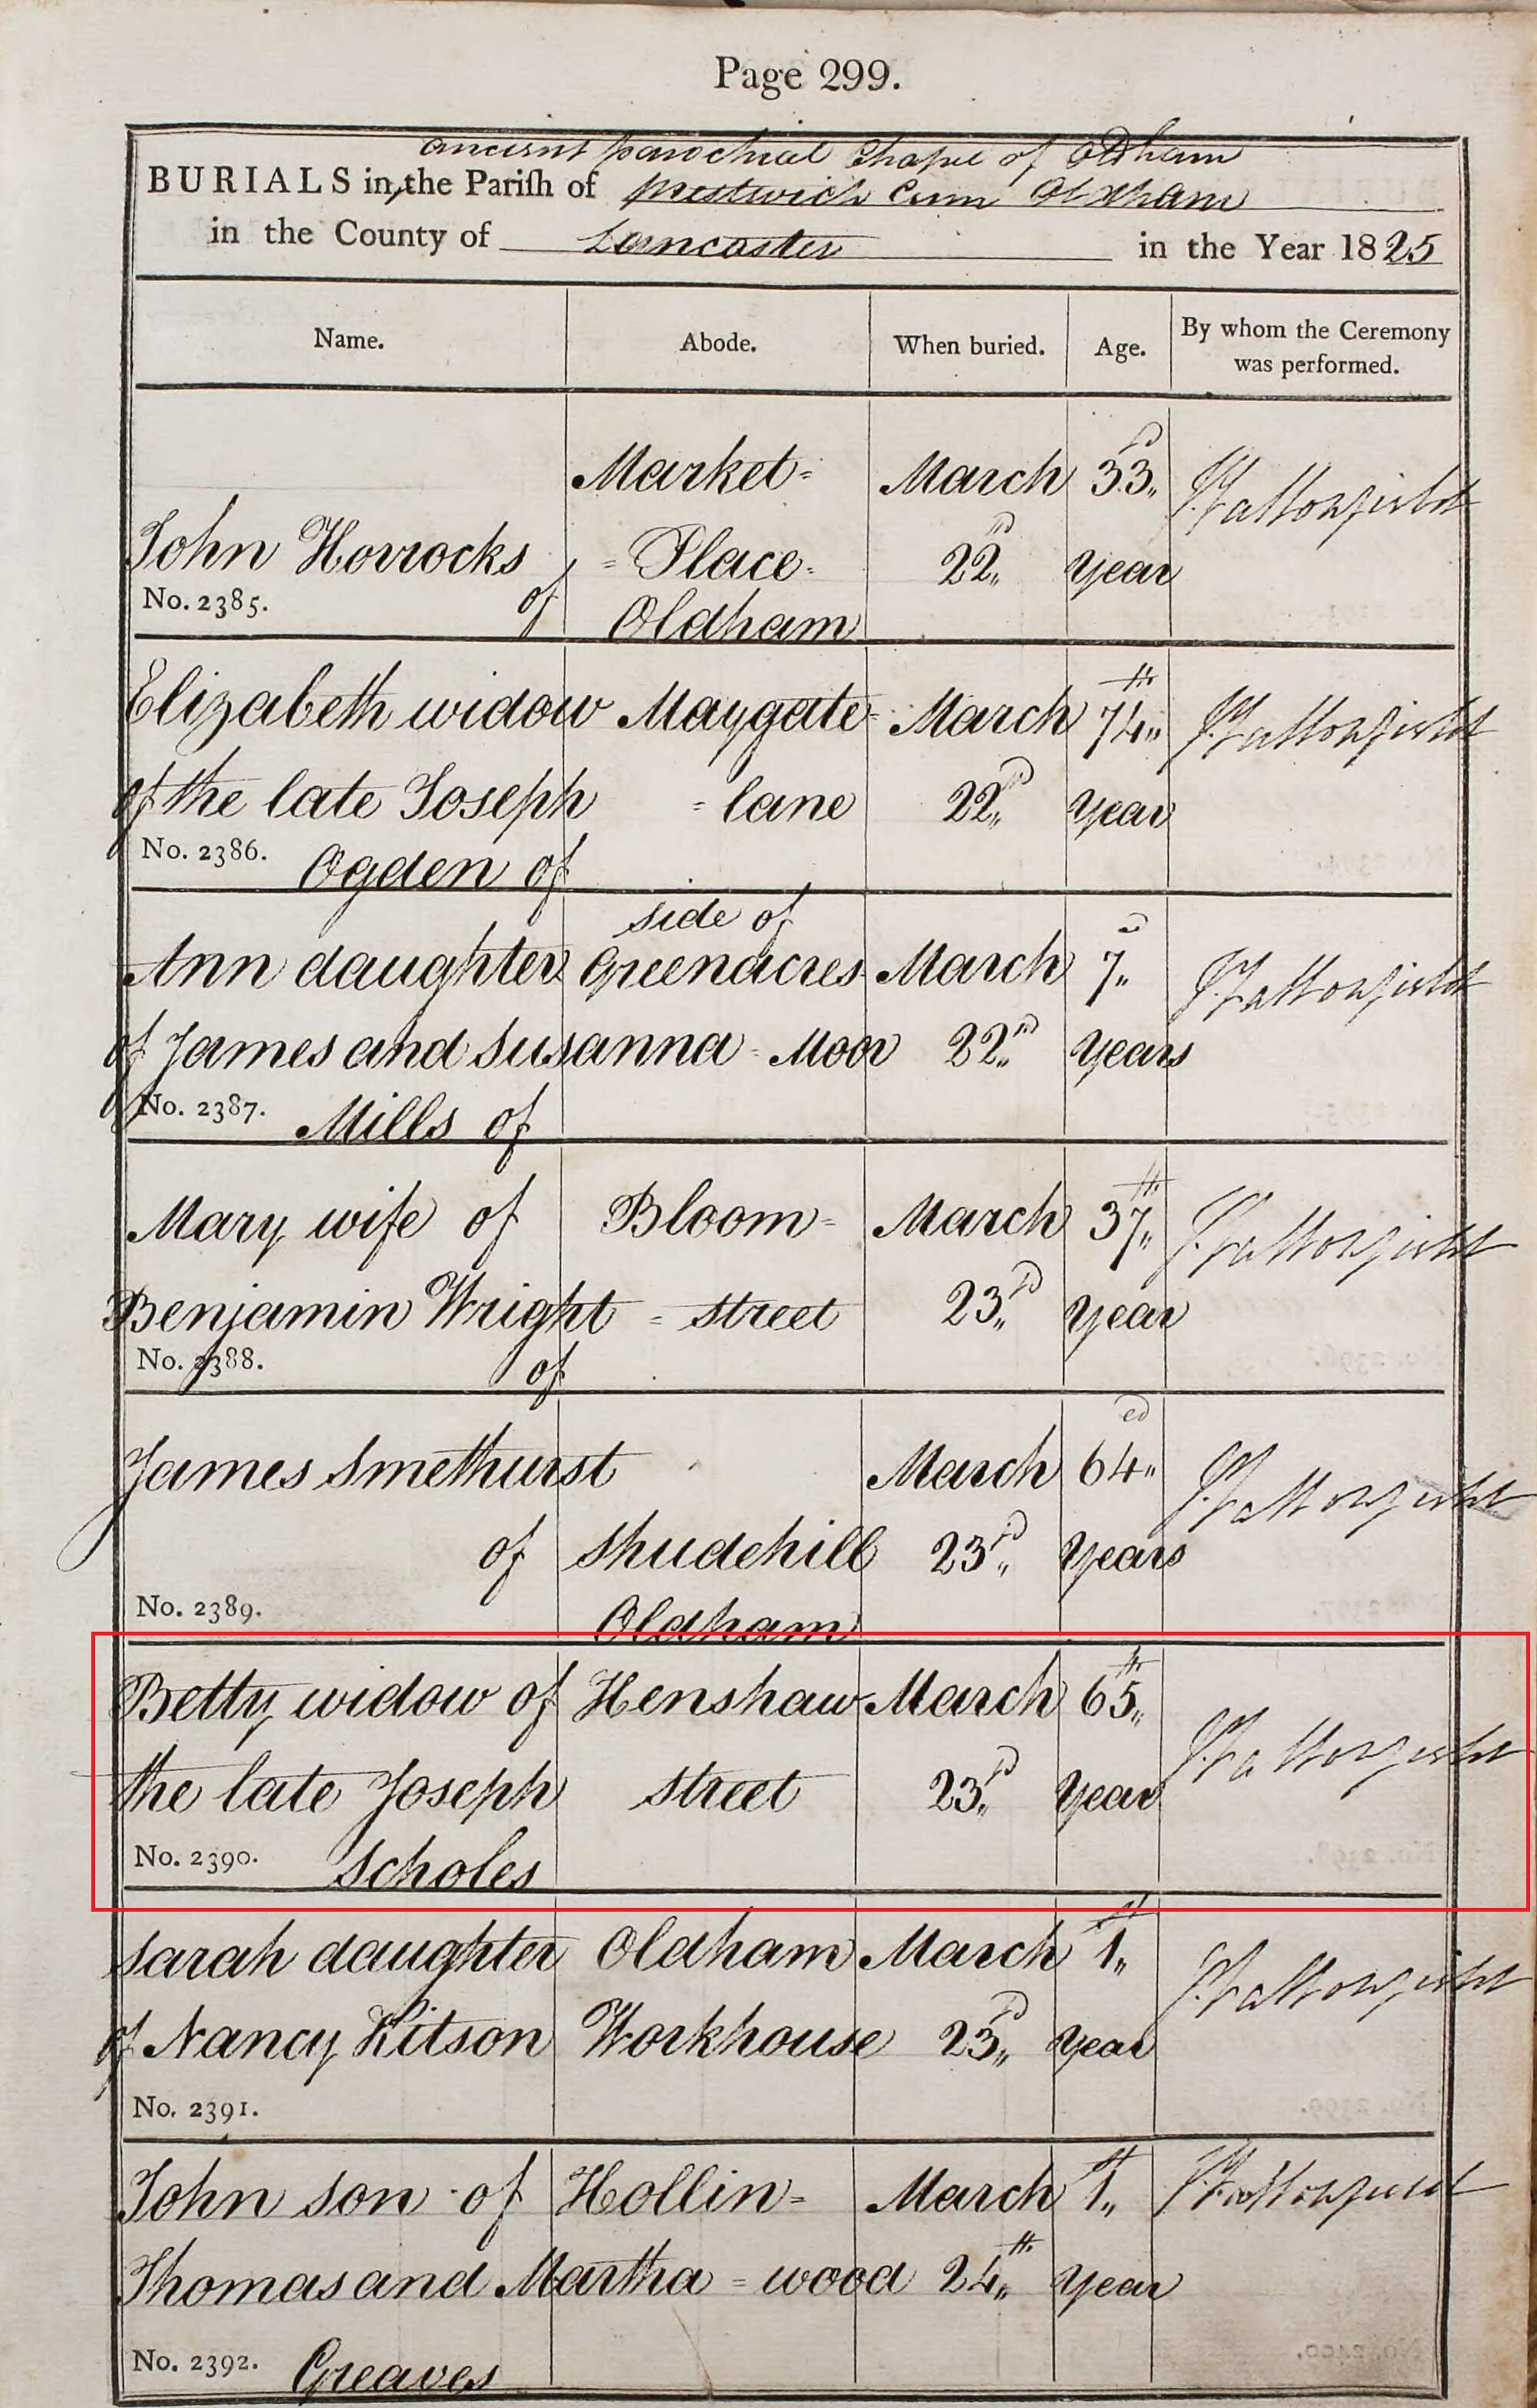 Page 299.
ancient parochial Chapel of Oldham
BURIALS in the Parish of Prestwich Cum Oldham
in the County of Lancaster in the Year 1825
Name. Abode. When buried. Age. By whom the Ceremony was performed.
Market= March 33,,d
John Horrocks =Place= 22,,d year
No. 2385. of Oldham
Elizabeth widow Maygate= March 74,,th
of the late Joseph =lane 22,,d year
No. 2386. Ogden of
side of
Ann daughter Greenacres March 7,,
of James and Susanna Moor 22,,d years
No. 2387. Mills of
Mary wife of Bloom= March 37,,th
Benjamin Wright =street 23,,d year
No. 2388. of
James Smethurst March 64,,ed
of Shudehill 23,,d years
No. 2389. Oldham
Betty widow of Henshaw March 65,,th
the late Joseph street 23,,d year
No. 2390. Scholes
Sarah daughter Oldham March 1,,st
of Nancy Kitson Workhouse 23,,d year
No. 2391.
John son of Hollin= March 1,,st
Thomas and Martha =wood 24,,th year
No. 2392. Greaves